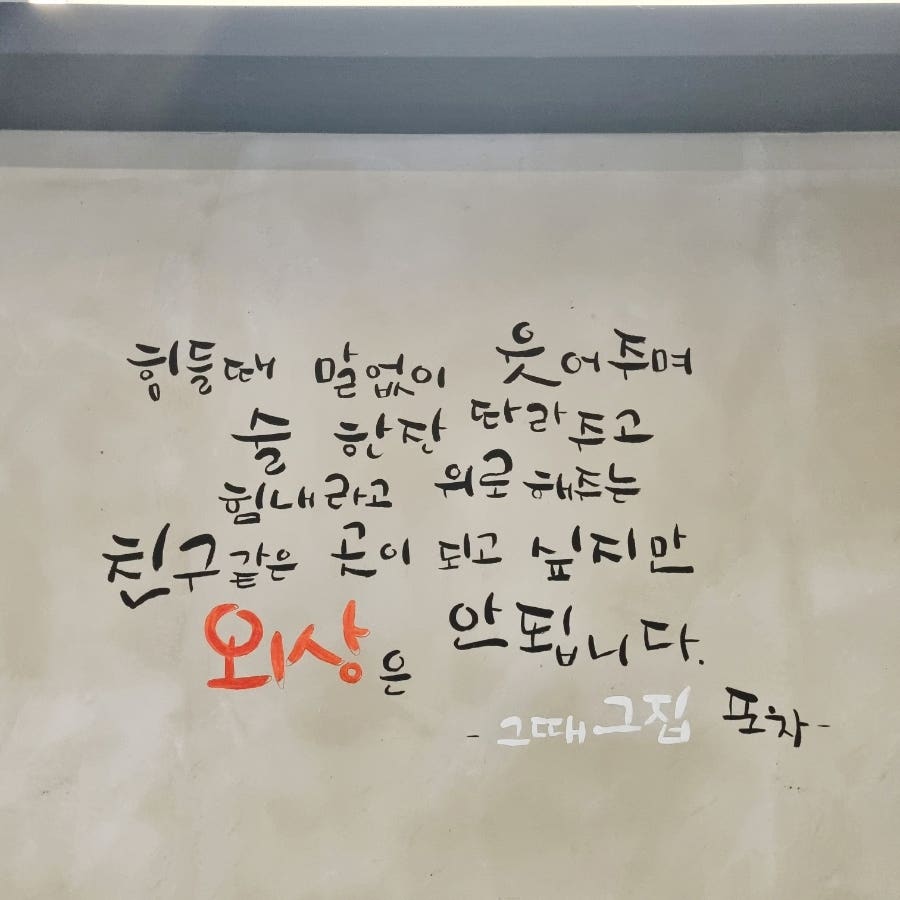 힘들때 말없이 웃어주며
술 한잔 따라주고
힘내라고 위로해주는
친구같은 곳이 되고 싶지만
외상은 안됩니다.
- 그때그집 포차 -